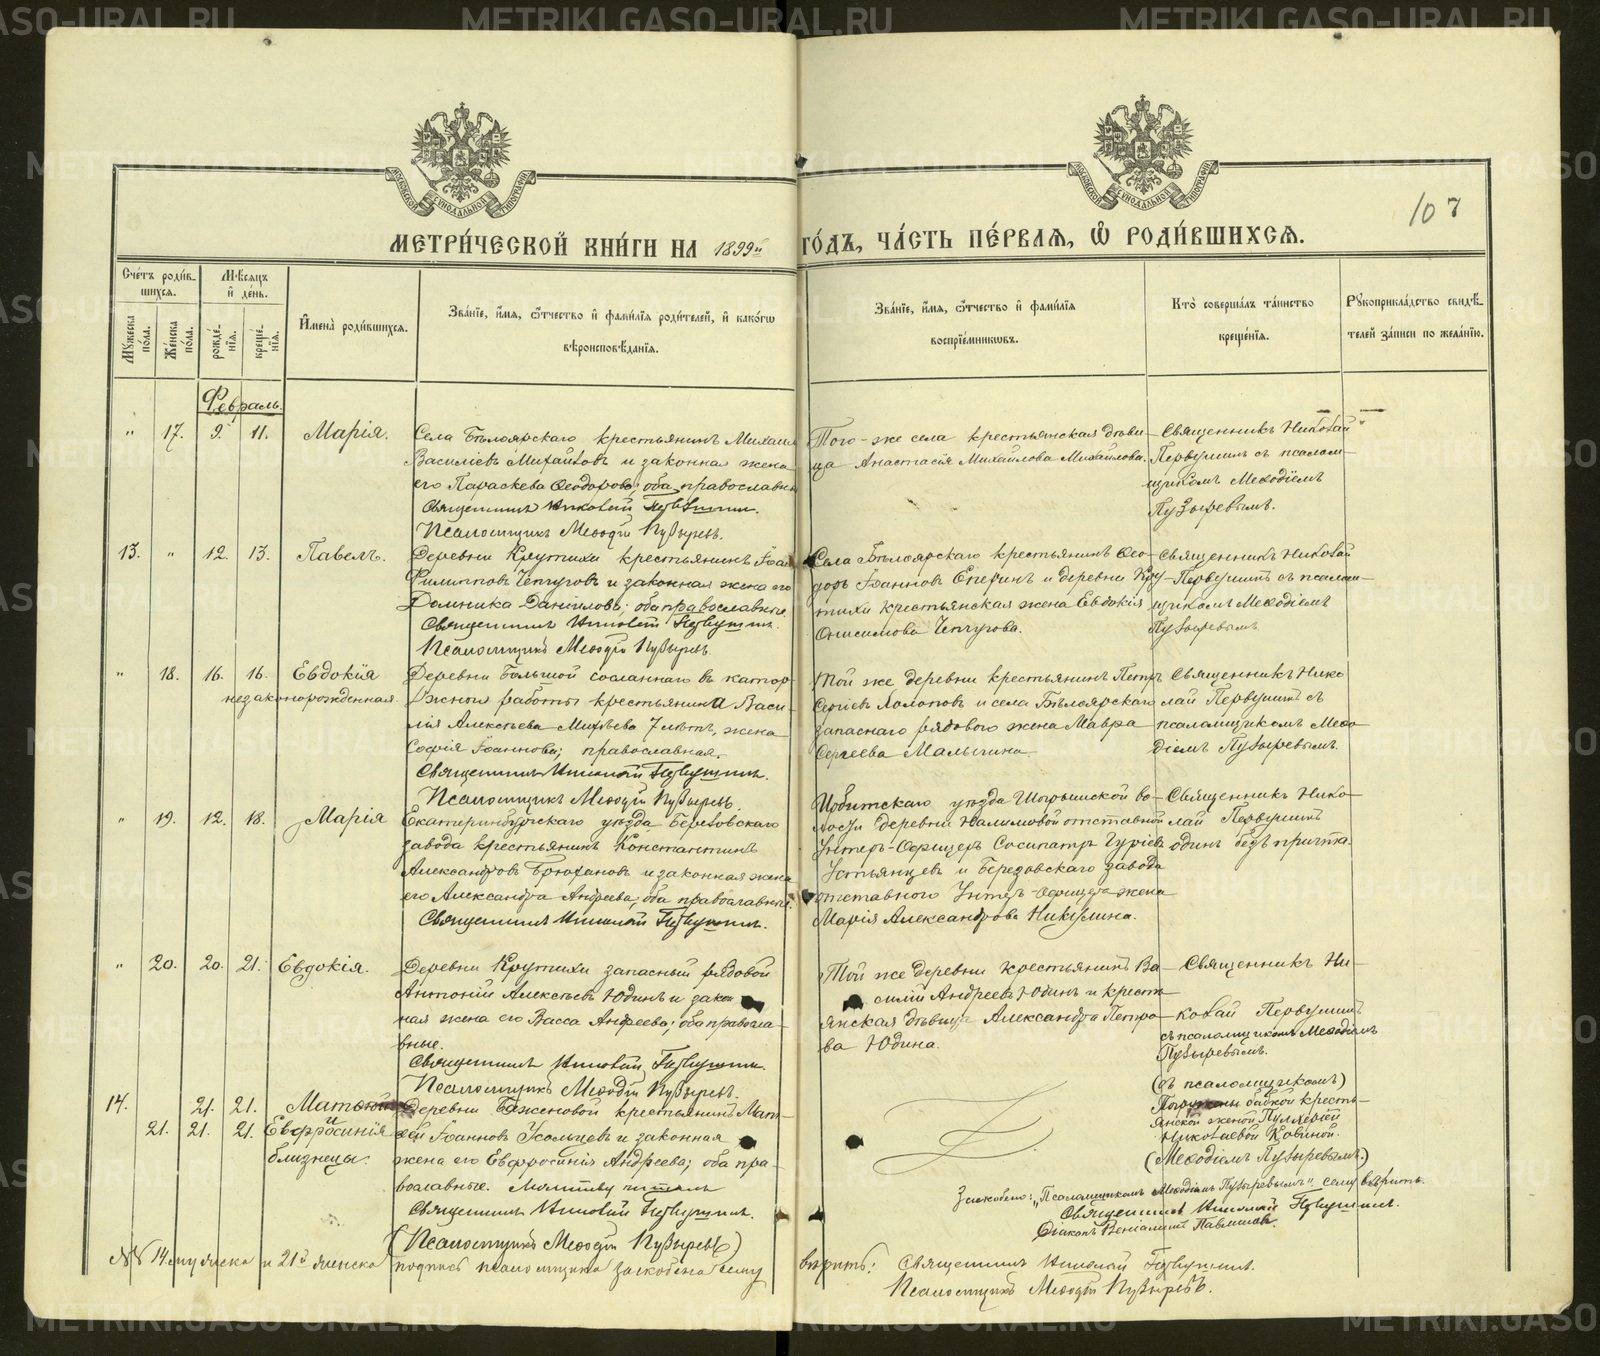 METRIKI.GASO-URAL.RU
МОСКОВСКОЙ СѴНОДАЛЬНОЙ ТИПОГРАФІИ
МОСКОВСКОЙ СѴНОДАЛЬНОЙ ТИПОГРАФІИ
107
МЕТРИ́ЧЕСКОЙ КНИ́ГИ НА 1899й ГО́ДЪ, ЧА́СТЬ ПЕ́РВАЯ, Ѡ РОДИ́ВШИХСЯ.
Сче́тъ роди́вшихся.
Мужеска по́ла.
Же́нска по́ла.
Мѣ́сяцъ и де́нь.
рожде́нія.
креще́нія.
И̓мена̀ роди́вшихся.
Зва́нїе, и̓́мя, ѻ҆́тчество и̓ фами́лїя роди́телей, и̓ како́гѡ вѣроисповѣ́данїя.
Зва́нїе, и̓́мя, ѻ҆́тчество и̓ фами́лїя воспрїе́мниковъ.
Кто̀ соверша́лъ та́инство креще́нїя.
Рукоприкла́дство свидѣ́телей за́писи по жела́нїю.
Февраль.
" 17. 9. 11. Марія.
Села Бѣлоярскаго крестьянинъ Михаилъ
Василіевъ Михайловъ и законная жена
его Параскева Ѳеодорова; оба православн.
Священникъ Николай Первушинъ.
Псаломщикъ Меѳодій Пузыревъ.
Того-же села крестьянская дѣви-
ца Анастасія Михайлова Михайлова.
Священникъ Николай
Первушинъ съ псалом-
щикомъ Меѳодіемъ
Пузыревымъ.
13. " 12. 13. Павелъ.
Деревни Крутихи крестьянинъ Іоан
Филипповъ Чепчуговъ и законная жена его
Домника Даніилова; оба православные.
Священникъ Николай Первушинъ.
Псаломщикъ Меѳодій Пузыревъ.
Села Бѣлоярскаго крестьянинъ Ѳео-
доръ Іоанновъ и деревни Кру-
тихи крестьянская жена Евдокія
Онисимова Чепчугова.
Священникъ Николай
Первушинъ съ псалом-
щикомъ Меѳодіемъ
Пузыревымъ.
" 18. 16. 16. Евдокія
незаконорожденная.
Деревни Большой сосланнаго въ катор-
жныя работы крестьянина Васи-
лія Алексѣева 7 лѣтъ, жена
Софія Іоаннова; православная.
Священникъ Николай Первушинъ.
Псаломщикъ Меѳодій Пузыревъ.
Той же деревни крестьянинъ Петръ
Сергіевъ Холоповъ и села Бѣлоярскаго
запаснаго рядового жена Мавра
Сергеева Малыгина.
Священникъ Нико-
лай Первушинъ съ
псаломщикомъ Меѳо-
діемъ Пузыревымъ.
" 19. 12. 18. Марія
Екатеринбургскаго уѣзда Березовскаго
завода крестьянинъ Константинъ
Александровъ Брюхановъ и законная жена
его Александра Андреева; оба православные.
Священникъ Николай Первушинъ.
Ирбитскаго уѣзда во-
лости деревни Налимовой отставной
Унтеръ-Офицеръ Сосипатръ Гуріевъ
Устьянцевъ и Березовскаго завода
отставного Унтеръ-офицера жена
Марія Александрова Никулина.
Священникъ Нико-
лай Первушинъ
одинъ безъ причта.
" 20. 20. 21. Евдокія.
Деревни Крутихи запасный рядовой
Антоній Алексѣевъ Юдинъ и закон
ная жена его Васса Андреева; оба правосла-
вные.
Священникъ Николай Первушинъ.
Псаломщикъ Меѳодій Пузыревъ.
Той же деревни крестьянинъ Ва-
силій Андреевъ Юдинъ и кресть-
янская дѣвица Александра Петро-
ва Юдина.
Священникъ Ни-
колай Первушинъ
съ псаломщикомъ Меѳодіемъ
Пузыревымъ.
14. 21. 21. Матѳей
и
21. 21. 21. Евфросинія
близнецы.
Деревни Баженовой крестьянинъ Мат-
ѳей Іоанновъ Усольцевъ и законная
жена его Евфросинія Андреева; оба пра-
вославные. Молитву читалъ
Священникъ Николай Первушинъ.
(Псаломщикъ Меѳодій Пузыревъ)
(съ псаломщикомъ)
Погружены бабкой кресть-
янской женой
Николаевой
(Меѳодіемъ Пузыревымъ.)
Заскоблено: „Псаломщикомъ Меѳодіемъ Пузыревымъ“, сему вѣрить.
Священникъ Николай Первушинъ.
Діаконъ
№№ 14 мужеска и 21й женска подпись псаломщика заскоблена сему вѣрить: Священникъ Николай Первушинъ.
Псаломщикъ Меѳодій Пузыревъ.